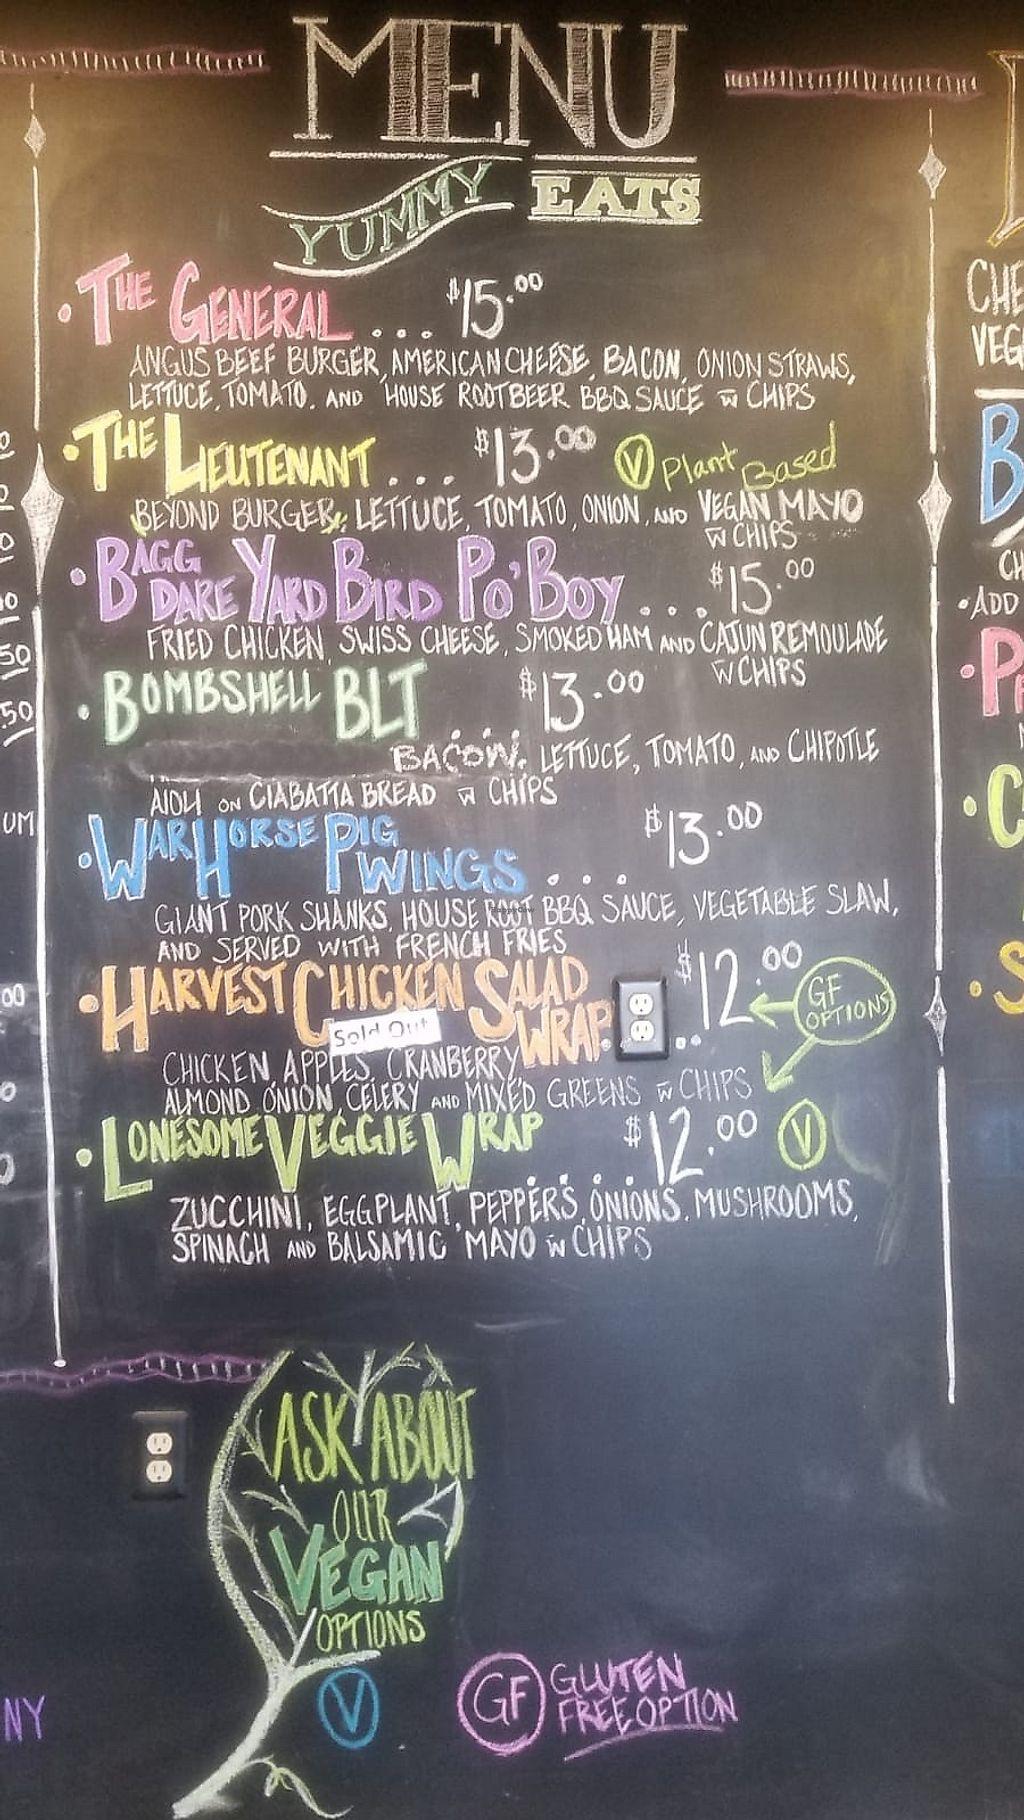 MENU
YUMMY EATS
• THE GENERAL ... $15.00
ANGUS BEEF BURGER, AMERICAN CHEESE, BACON, ONION STRAWS,
LETTUCE, TOMATO, AND HOUSE ROOTBEER BBQ SAUCE w CHIPS
• THE LIEUTENANT ... $13.00 V Plant Based
BEYOND BURGER, LETTUCE, TOMATO, ONION, AND VEGAN MAYO
w CHIPS
• BAGG DARE YARD BIRD PO'BOY ... $15.00
FRIED CHICKEN, SWISS CHEESE, SMOKED HAM AND CAJUN REMOULADE
w CHIPS
• BOMBSHELL BLT ... $13.00
BACON, LETTUCE, TOMATO, AND CHIPOTLE
AIOLI ON CIABATTA BREAD w CHIPS
• WARHORSE PIG WINGS ... $13.00
GIANT PORK SHANKS, HOUSE ROOT BBQ SAUCE, VEGETABLE SLAW,
AND SERVED WITH FRENCH FRIES
• HARVEST CHICKEN SALAD WRAP ... $12.00 GF OPTIONS
Sold Out
CHICKEN, APPLES, CRANBERRY,
ALMOND, ONION, CELERY AND MIXED GREENS w CHIPS
• LONESOME VEGGIE WRAP ... $12.00 V
ZUCCHINI, EGGPLANT, PEPPERS, ONIONS, MUSHROOMS,
SPINACH AND BALSAMIC MAYO w CHIPS
ASK ABOUT
OUR
VEGAN
OPTIONS
V
GF GLUTEN
FREE OPTION
NY
.50
.50
UM
00
CHE
VEG
B
CH
• ADD